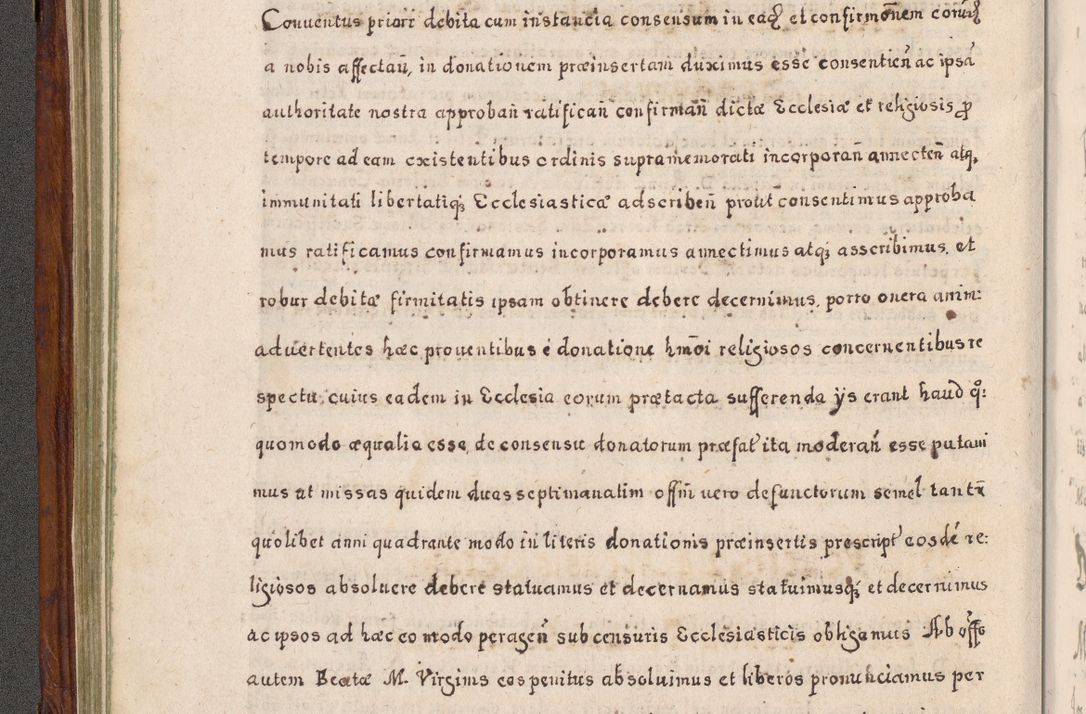 Conuentus priorr debita cum instancia consensum in eaq̃ et confirmõnem corũq̃
a nobis affectañ, in donationem præinsertam duximus esse consentieñ ac ipsã
authoritate nostra approbañ ratificañ confirmañ dictæ Ecclesiæ et religiosis ꝓ
tempore ad eam existentibus ordinis supramemorati incorporañ annecteñ atq,
immunitati libertatiqȝ Ecclesiasticæ adscribeñ prout consentimus approba
mus ratificamus confirmamus incorporamus annectimus atqȝ asscribimus, et
robur debitæ firmitatis ipsam obtinere debere decernimus, porro onera anim:
aduertentes hæc prouentibus é donatione hmõi religiosos concernentibus re
spectu, cuius eadem in Ecclesia eorum prætacta sufferenda ÿs erant haud q̊:
quomodo æqualia esse, de consensu donatorum præfat ita moderañ esse putaui
mus at missas quidem duas septimanatim offm̃ uero defunctorum semel tantũ
quolibet anni quadrante modo in literis donationis præinsertis prescript eosdé re:
ligiosos absoluere debere statuamus et decernamus statuimusqȝ et decernimus
ac ipsos ad hæc eo modo perageñ sub censuris Ecclesiasticis obligamus Ab offo
autem Beatæ M. Virginis eos penitus absoluimus et liberos pronunciamus per